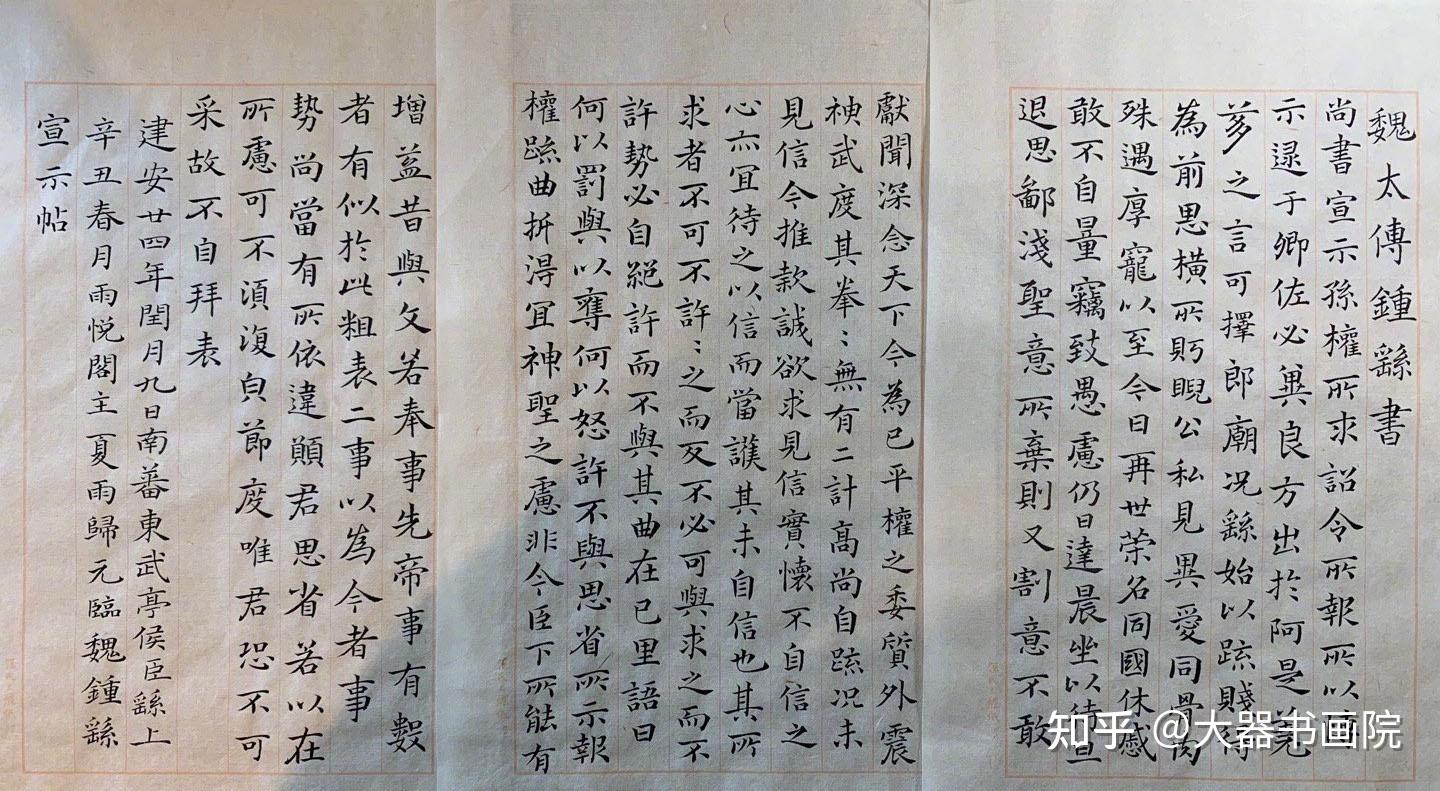 魏太傅鍾繇書
尚書宣示孫權所求詔令所報所以博
示逮于卿佐必冀良方出於阿是
之言可擇郎廟況繇始以疏賤得
為前恩橫所眄睨公私見異愛同骨肉
殊遇厚寵以至今日再世榮名同國休慼
敢不自量竊致愚慮仍日達晨坐以待旦
退思鄙淺聖意所棄則又割意不敢
獻聞深念天下今為已平權之委質外震
神武度其拳〻無有二計高尚自疏況未
見信今推款誠欲求見信實懷不自信之
心亦宜待之以信而當護其未自信也其所
求者不可不許〻之而反不必可與求之而不
許勢必自絕許而不與其曲在己里語曰
何以罰與以奪何以怒許不與思省所示報
權疏曲折得宜神聖之慮非今臣下所能有
增益昔與文若奉事先帝事有數
者有似於此粗表二事以為今者事
勢尚當有所依違願君思省若以在
所慮可不須復皃節度唯君恐不可
采故不自拜表
建安廿四年閏月九日南蕃東武亭侯臣繇上
辛丑春月雨悅閣主夏雨歸元臨魏鍾繇
宣示帖
知乎 @大器书画院